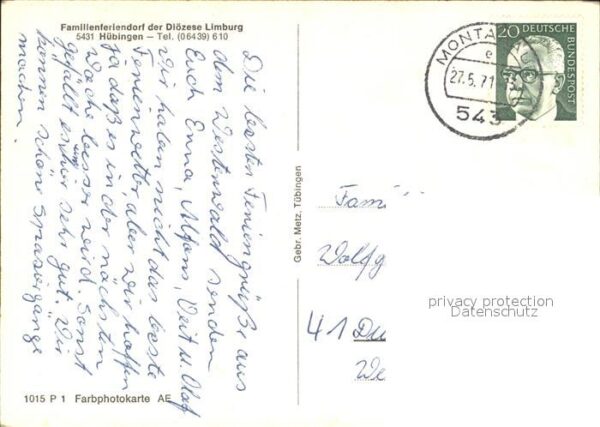 Familienferiendorf der Diözese Limburg
5431 Hübingen — Tel. (06439) 610
Die besten Feriengrüße aus
dem Westerwald senden
Euch Enna, Alfons, Veit u. Olaf
Wir haben nicht das beste
Ferienwetter, aber wir hoffen
ja daß es in der nächsten
Woche besser wird. Sonst
gefällt es uns hier sehr gut. Wir
können schön Spaziergänge
machen.
1015 P 1 Farbphotokarte AE
Gebr. Metz, Tübingen
MONTABAUR
e
27.5.71
543
20 DEUTSCHE BUNDESPOST
Fami
Wolfg
41 Du
We
privacy protection
Datenschutz